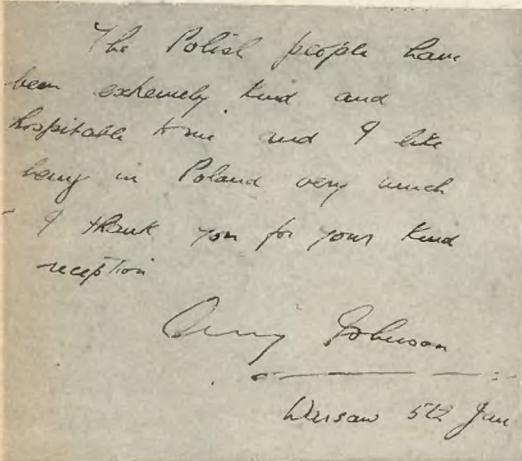 The Polish people have
been extremely kind and
hospitable to me and I like
being in Poland very much
- I thank you for your kind
reception
Amy Johnson
Warsaw 5th Jan